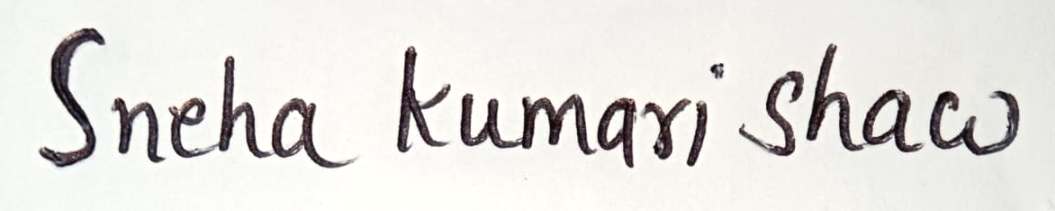 Sneha kumari shaw